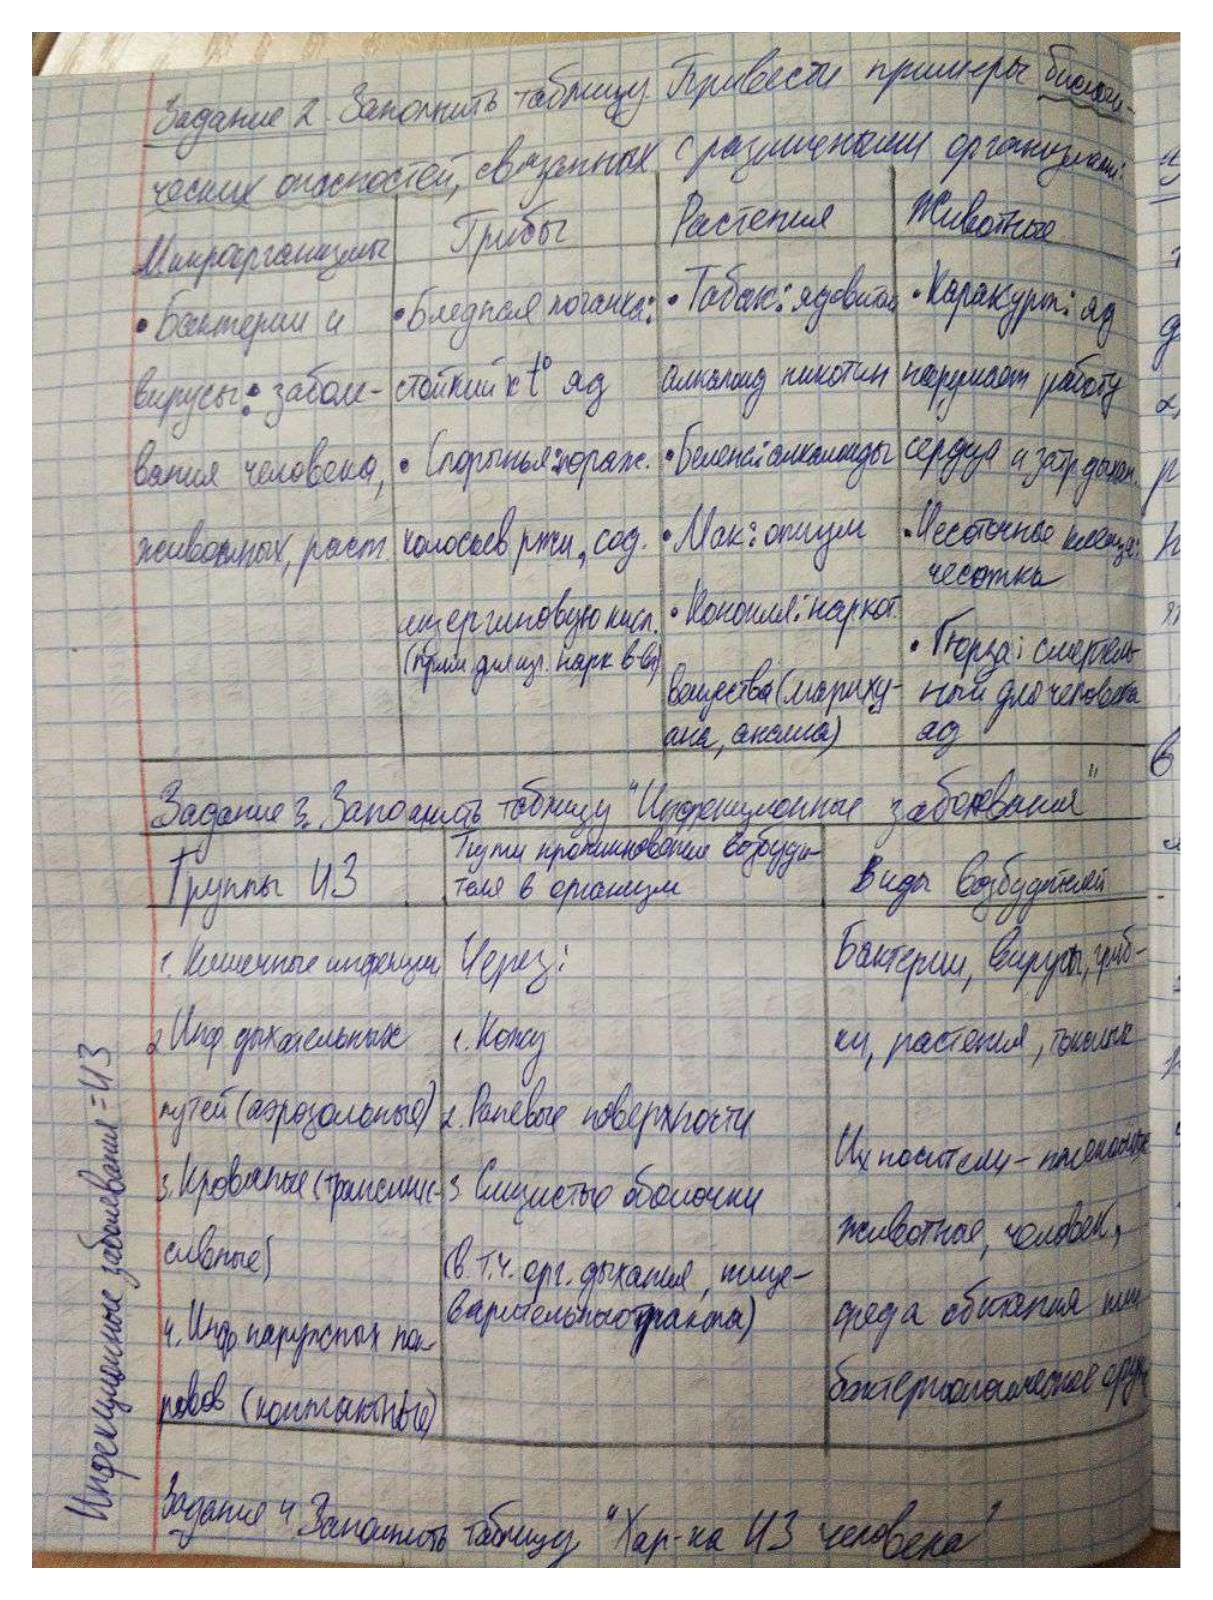 Задание 2. Заполнить таблицу. Привести примеры биологи-
ческих опасностей, связанных с различными организмами:
Микроорганизмы
• Бактерии и
вирусы: заболе-
вания человека,
животных, раст.
Грибы
• Бледная поганка:
стойкий к t° яд
• Спорынья: пораж.
колосьев ржи, сод.
лизергиновую кисл.
(прим для изг. нарк в-в)
Растения
• Табак: ядовитый
алкалоид никотин
• Белена: алкалоиды
• Мак: опиум
• Конопля: наркот.
вещества (мариху-
ана, анаша)
Животные
• Каракурт: яд
нарушает работу
сердца и затр. дыхан.
• Чесоточные клещи:
чесотка
• Гюрза: смертель-
ный для человека
яд
Задание 3. Заполнить таблицу "Инфекционные заболевания"
Группы ИЗ
1. Кишечные инфекции
2. Инф. дыхательных
путей (аэрозольные)
3. Кровяные (трансмис-
сивные)
4. Инф. наружных пок-
ровов (контактные)
Пути проникновения возбуди-
теля в организм
Через:
1. Кожу
2. Раневые поверхности
3. Слизистые оболочки
(в т.ч. орг. дыхания, пище-
варительного тракта)
Виды возбудителей
Бактерии, вирусы, гриб-
ки, растения, токсины
Их носители - насекомые
животные, человек,
среда обитания или
бактериологическое оруж
Инфекционные заболевания = ИЗ
Задание 4. Заполнить таблицу "Хар-ка ИЗ человека"